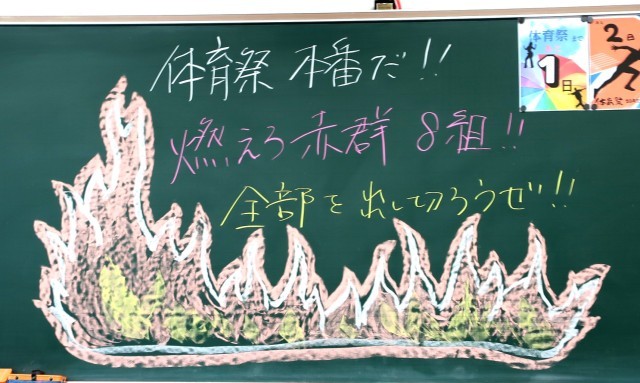 体育祭 本番だ!!
燃えろ赤群 8組!!
全部を出し切ろうぜ!!
体育祭 まで
1日
2日